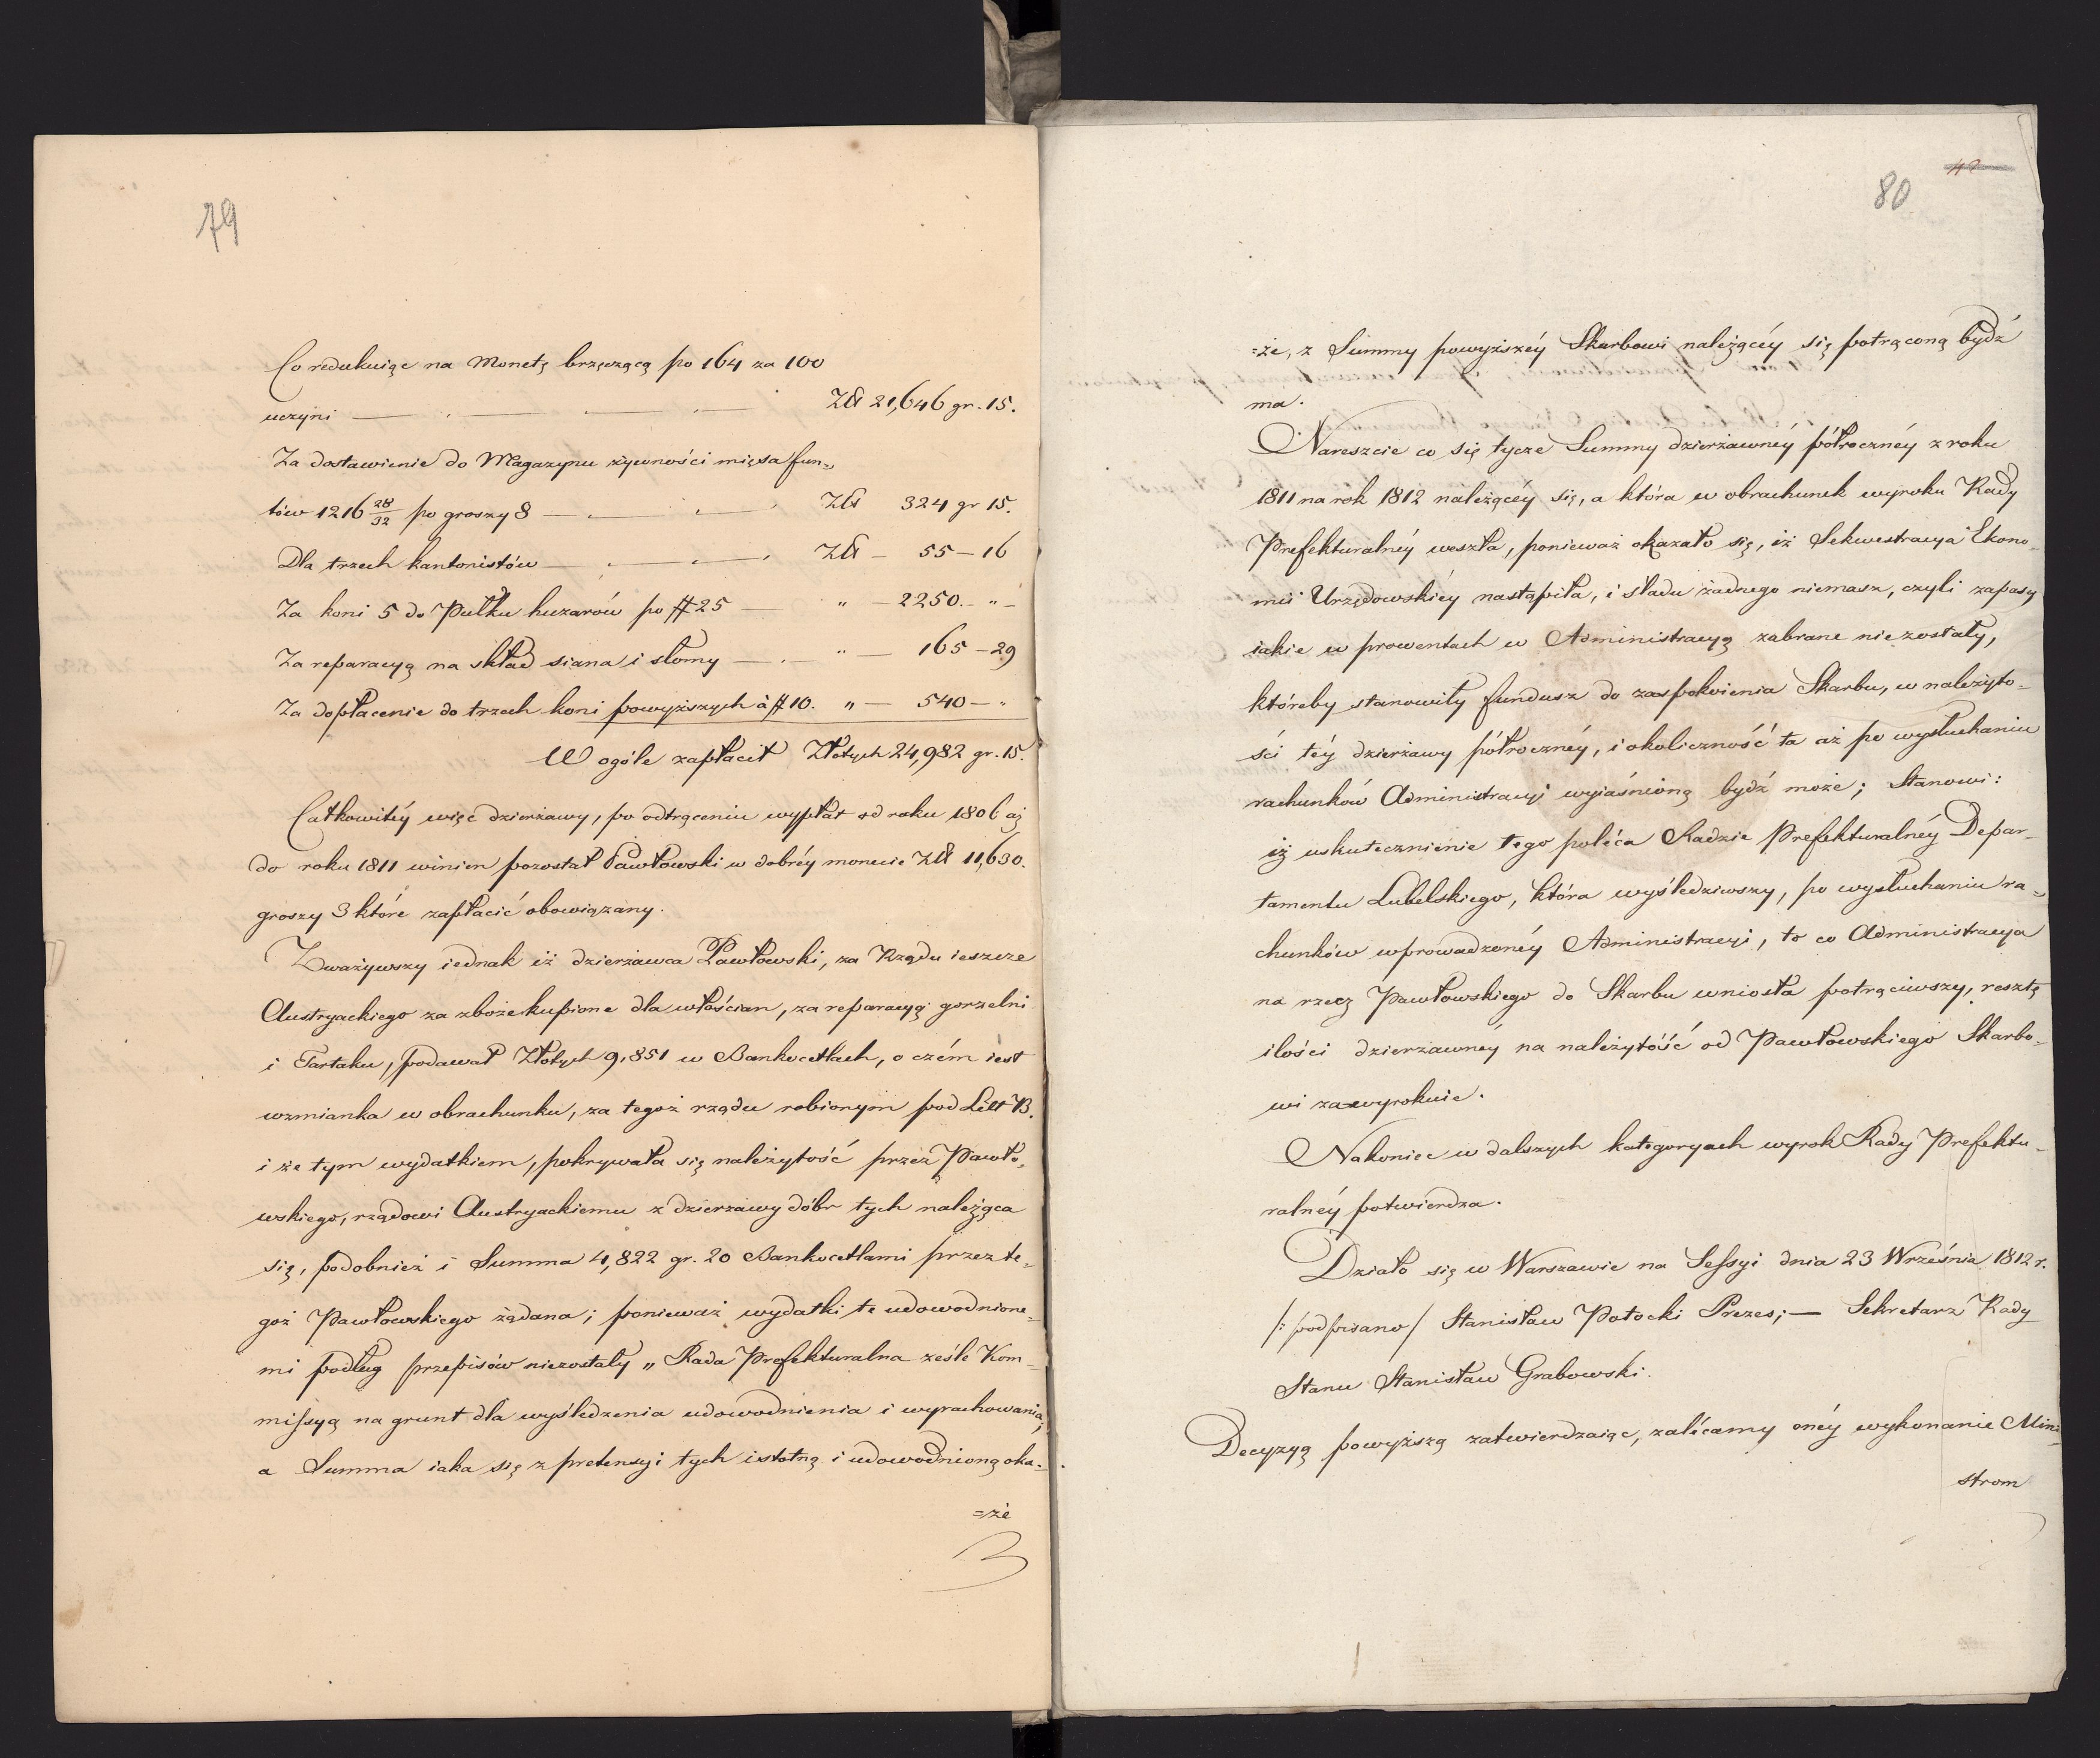 79
Co redukuiąc na Monetę brzęczącą po 164 za 100
uczyni — Zł 21,646 gr. 15.
Za dostawienie do Magazynu żywności mięsa fun=
tów 1216 28/32 po groszy 8 — Zł 324 gr 15.
Dla trzech kantonistów — Zł — 55 — 16
Za koni 5 do Pułku huzarów po # 25 " — 2250. — " —
Za reparacyą na skład siana i słomy — " — 165 — 29
Za dopłacenie do trzech koni powyższych à # 10. " — 540 — "
W ogóle zapłacił Złotych 24,982 gr. 15.
Całkowitéy więc dzierżawy, po odtrąceniu wypłat od roku 1806 aż
do roku 1811 winien pozostał Pawłowski w dobréy monecie Zł 11,630.
groszy 3 które zapłacić obowiązany.
Zważywszy iednak iż dzierżawca Pawłowski, za Rządu ieszcze
Austryackiego za zboże kupione dla włościan, za reparacyą gorzelni
i Tartaku, podawał Złotych 9,851 w Bankocetlach, o czém iest
wzmianka w obrachunku, za tegoż rządu robionym pod Litt B.
i że tym wydatkiem, pokrywała się należytość przez Pawło=
wskiego, rządowi Austryackiemu z dzierżawy dóbr tych należąca
się, podobnież i Summa 4,822 gr. 20 Bankocetlami przez te=
goż Pawłowskiego żądana; ponieważ wydatki te udowodnione=
mi podług przepisów niezostały „ Rada Prefekturalna ześle Kom=
missyą na grunt dla wyśledzenia udowodnienia i wyrachowania;
a Summa iaka się z pretensyi tych istotną i udowodnioną oka=
=że
80
=że, z Summy powyższéy Skarbowi należącéy się potrąconą bydź
ma.
Nareszcie co się tycze Summy dzierżawnéy półrocznéy z roku
1811 na rok 1812 należącéy się, a która w obrachunek wyroku Rady
Prefekturalnéy weszła, ponieważ okazało się, iż Sekwestracya Ekono=
mii Urzędowskiéy nastąpiła, i śladu żadnego niemasz, czyli zapasy
iakie w prowentach w Administracyą zabrane nie zostały,
któreby stanowiły fundusz do zaspokoienia Skarbu, w należyto=
ści téy dzierżawy półrocznéy, i okoliczność ta aż po wysłuchaniu
rachunków Administracyi wyiaśnioną bydź może; Stanowi:
iż uskutecznienie tego poléca Radzie Prefekturalnéy Depar=
tamentu Lubelskiego, która wyśledziwszy, po wysłuchaniu ra=
chunków wprowadzonéy Administracyi, to co Administracya
na rzecz Pawłowskiego do Skarbu wniosła potrąciwszy, resztę
ilości dzierżawnéy na należytość od Pawłowskiego Skarbo=
wi zawyrokuie.
Nakoniec w dalszych kategoryach wyrok Rady Prefektu=
ralnéy potwierdza.
Działo się w Warszawie na Sessyi dnia 23 Września 1812 r.
/: podpisano / Stanisław Potocki Prezes; — Sekretarz Rady
Stanu Stanisław Grabowski.
Decyzyą powyższą zatwierdzaiąc, zalécamy onéy wykonanie Mini=
strom